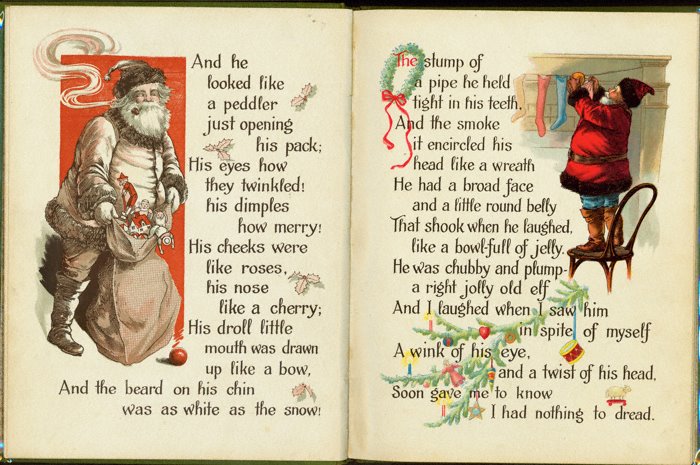 And he
looked like
a peddler
just opening
his pack;
His eyes how
they twinkled!
his dimples
how merry!
His cheeks were
like roses,
his nose
like a cherry;
His droll little
mouth was drawn
up like a bow,
And the beard on his chin
was as white as the snow!
The stump of
a pipe he held
tight in his teeth,
And the smoke
it encircled his
head like a wreath
He had a broad face
and a little round belly
That shook when he laughed,
like a bowl-full of jelly.
He was chubby and plump-
a right jolly old elf
And I laughed when I saw him
in spite of myself
A wink of his eye,
and a twist of his head,
Soon gave me to know
I had nothing to dread.